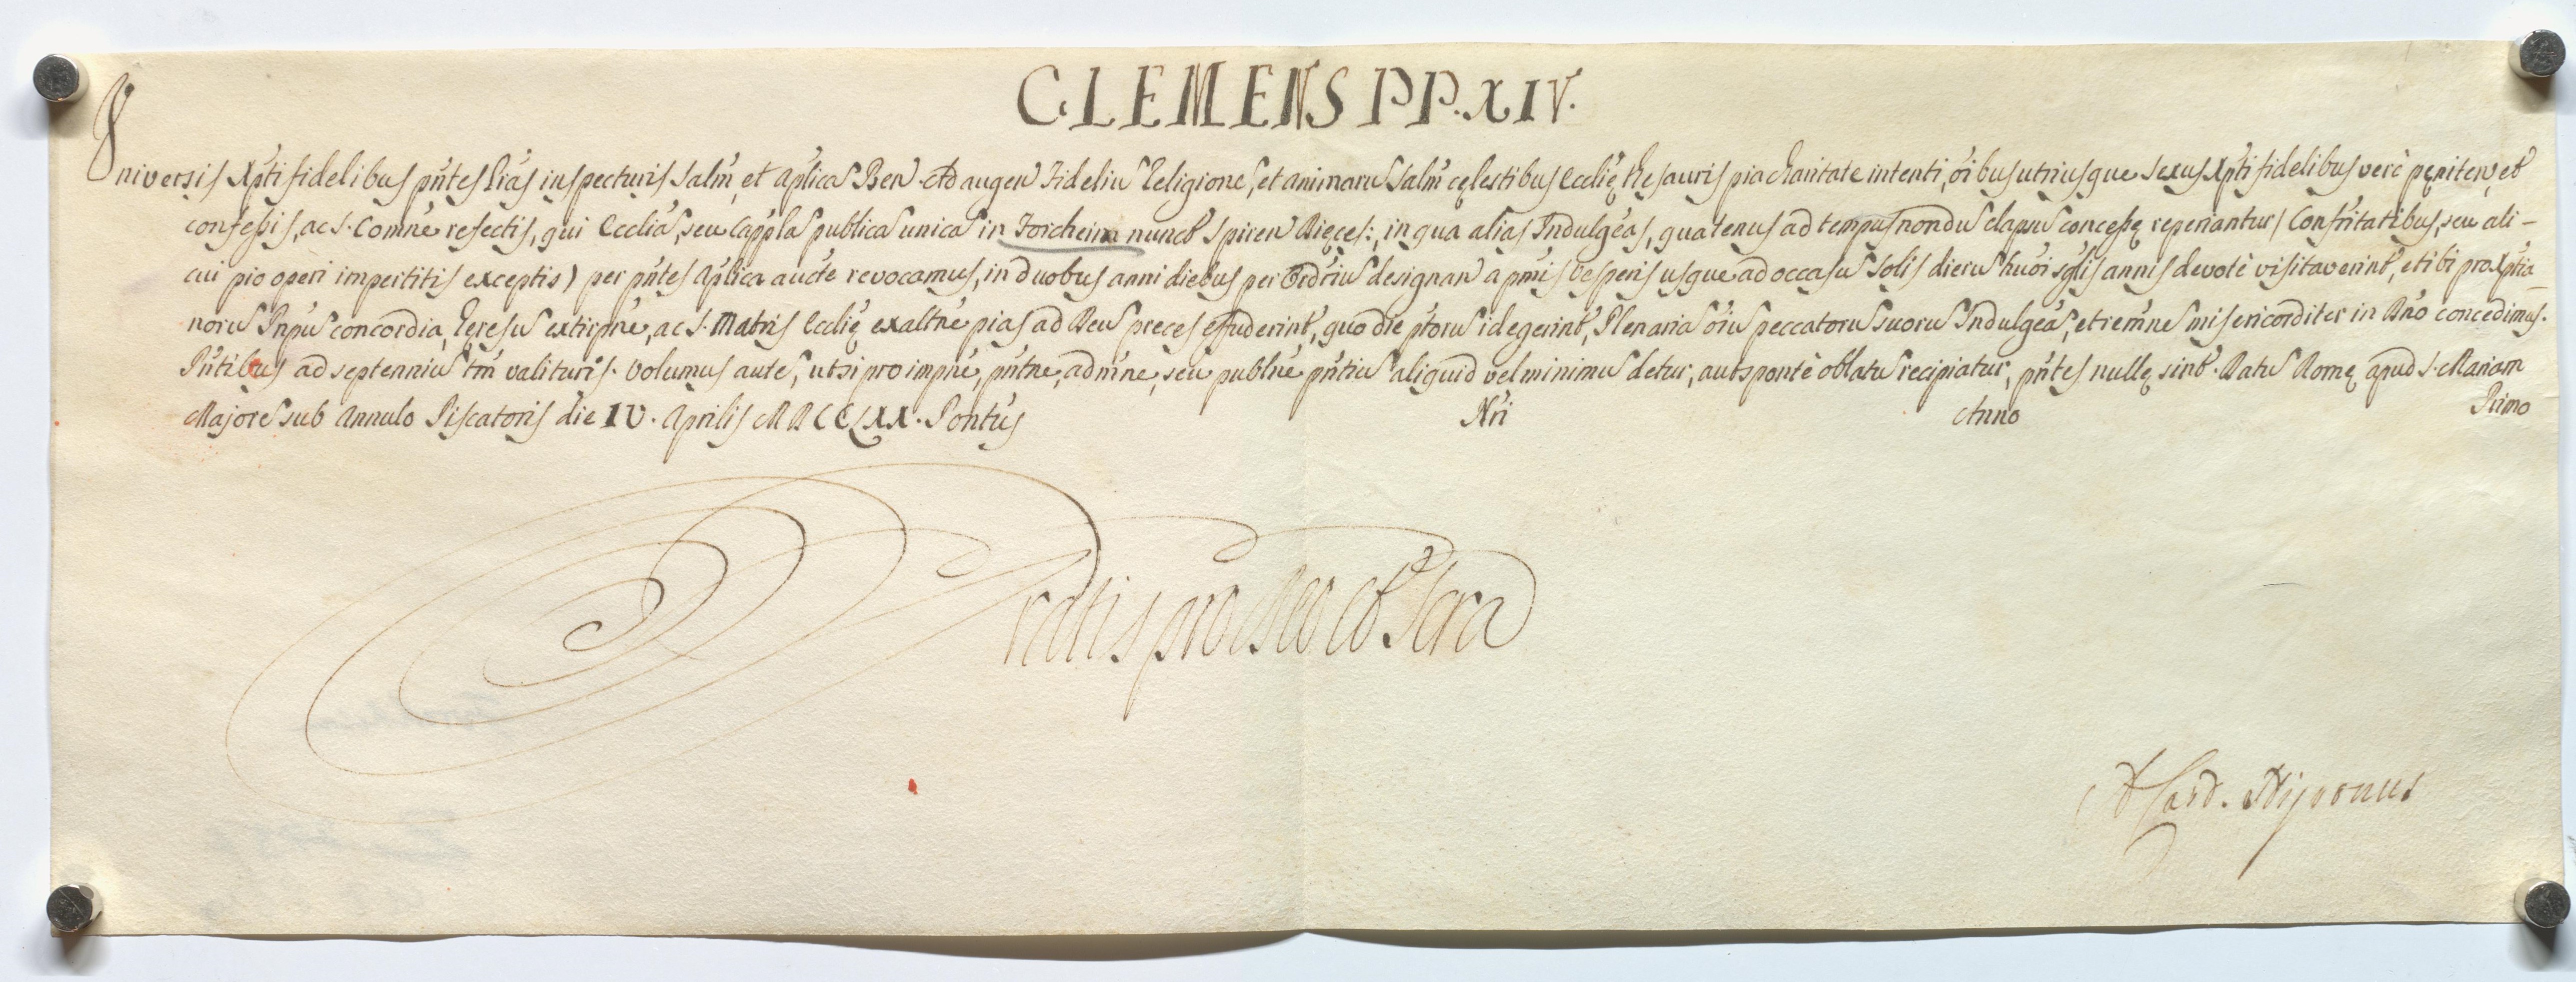 CLEMENS PP. XIV.
Universis Xpti fidelibus pńtes Lrás inspecturis Salm̃, et aplicã Ben. Ad augen Fideliũ Religionẽ, et animarũ Salm̃ cęlestibus Ecclię thesauris pia charitate intenti, oĩbus utriusque sexus Xpti fidelibus verè pęniten, et
confeßis, ac S. Comńe refectis, qui Eccliã, seu Capplã publicã unicã in Forcheim nunct Spiren Dięces:, in qua alias Indulgéas, quatenus ad tempus nondũ elapsũ conceßę reperiantur (Confrítatibus, seu ali-
cui pio operi impertitis exceptis) per pńtes aplica aucte revocamus, in duobus anni diebus per Ordriũ designan a pmis vesperis usque ad occasũ solis dierũ huõi sglis annis devotè visitaverint, et ibi pro Xptia-
norũ Pnpũ concordia, hęresũ extirpńe, ac S. Matris Ecclię exaltńe pias ad Deũ preces effuderint, quo die ptorũ id egerint, Plenariã oĩũ peccatorũ suorũ Indulgéã, et remńẽ misericorditer in Dńo concedimus.
Pńtibus ad septenniũ tm̃ valituris. Volumus autẽ, ut si pro impńe, pńtńe, admńe, seu publńe pńtiũ aliquid vel minimũ detur, aut sponte oblatũ recipiatur, pńtes nullę sint. Datũ Romę apud S. Mariam
Majorẽ sub Annulo Piscatoris die IV. Aprilis MDCCLXX. Pontus Nri Anno Primo
Gratis pro Deo et Scra
A Card. Nigronus